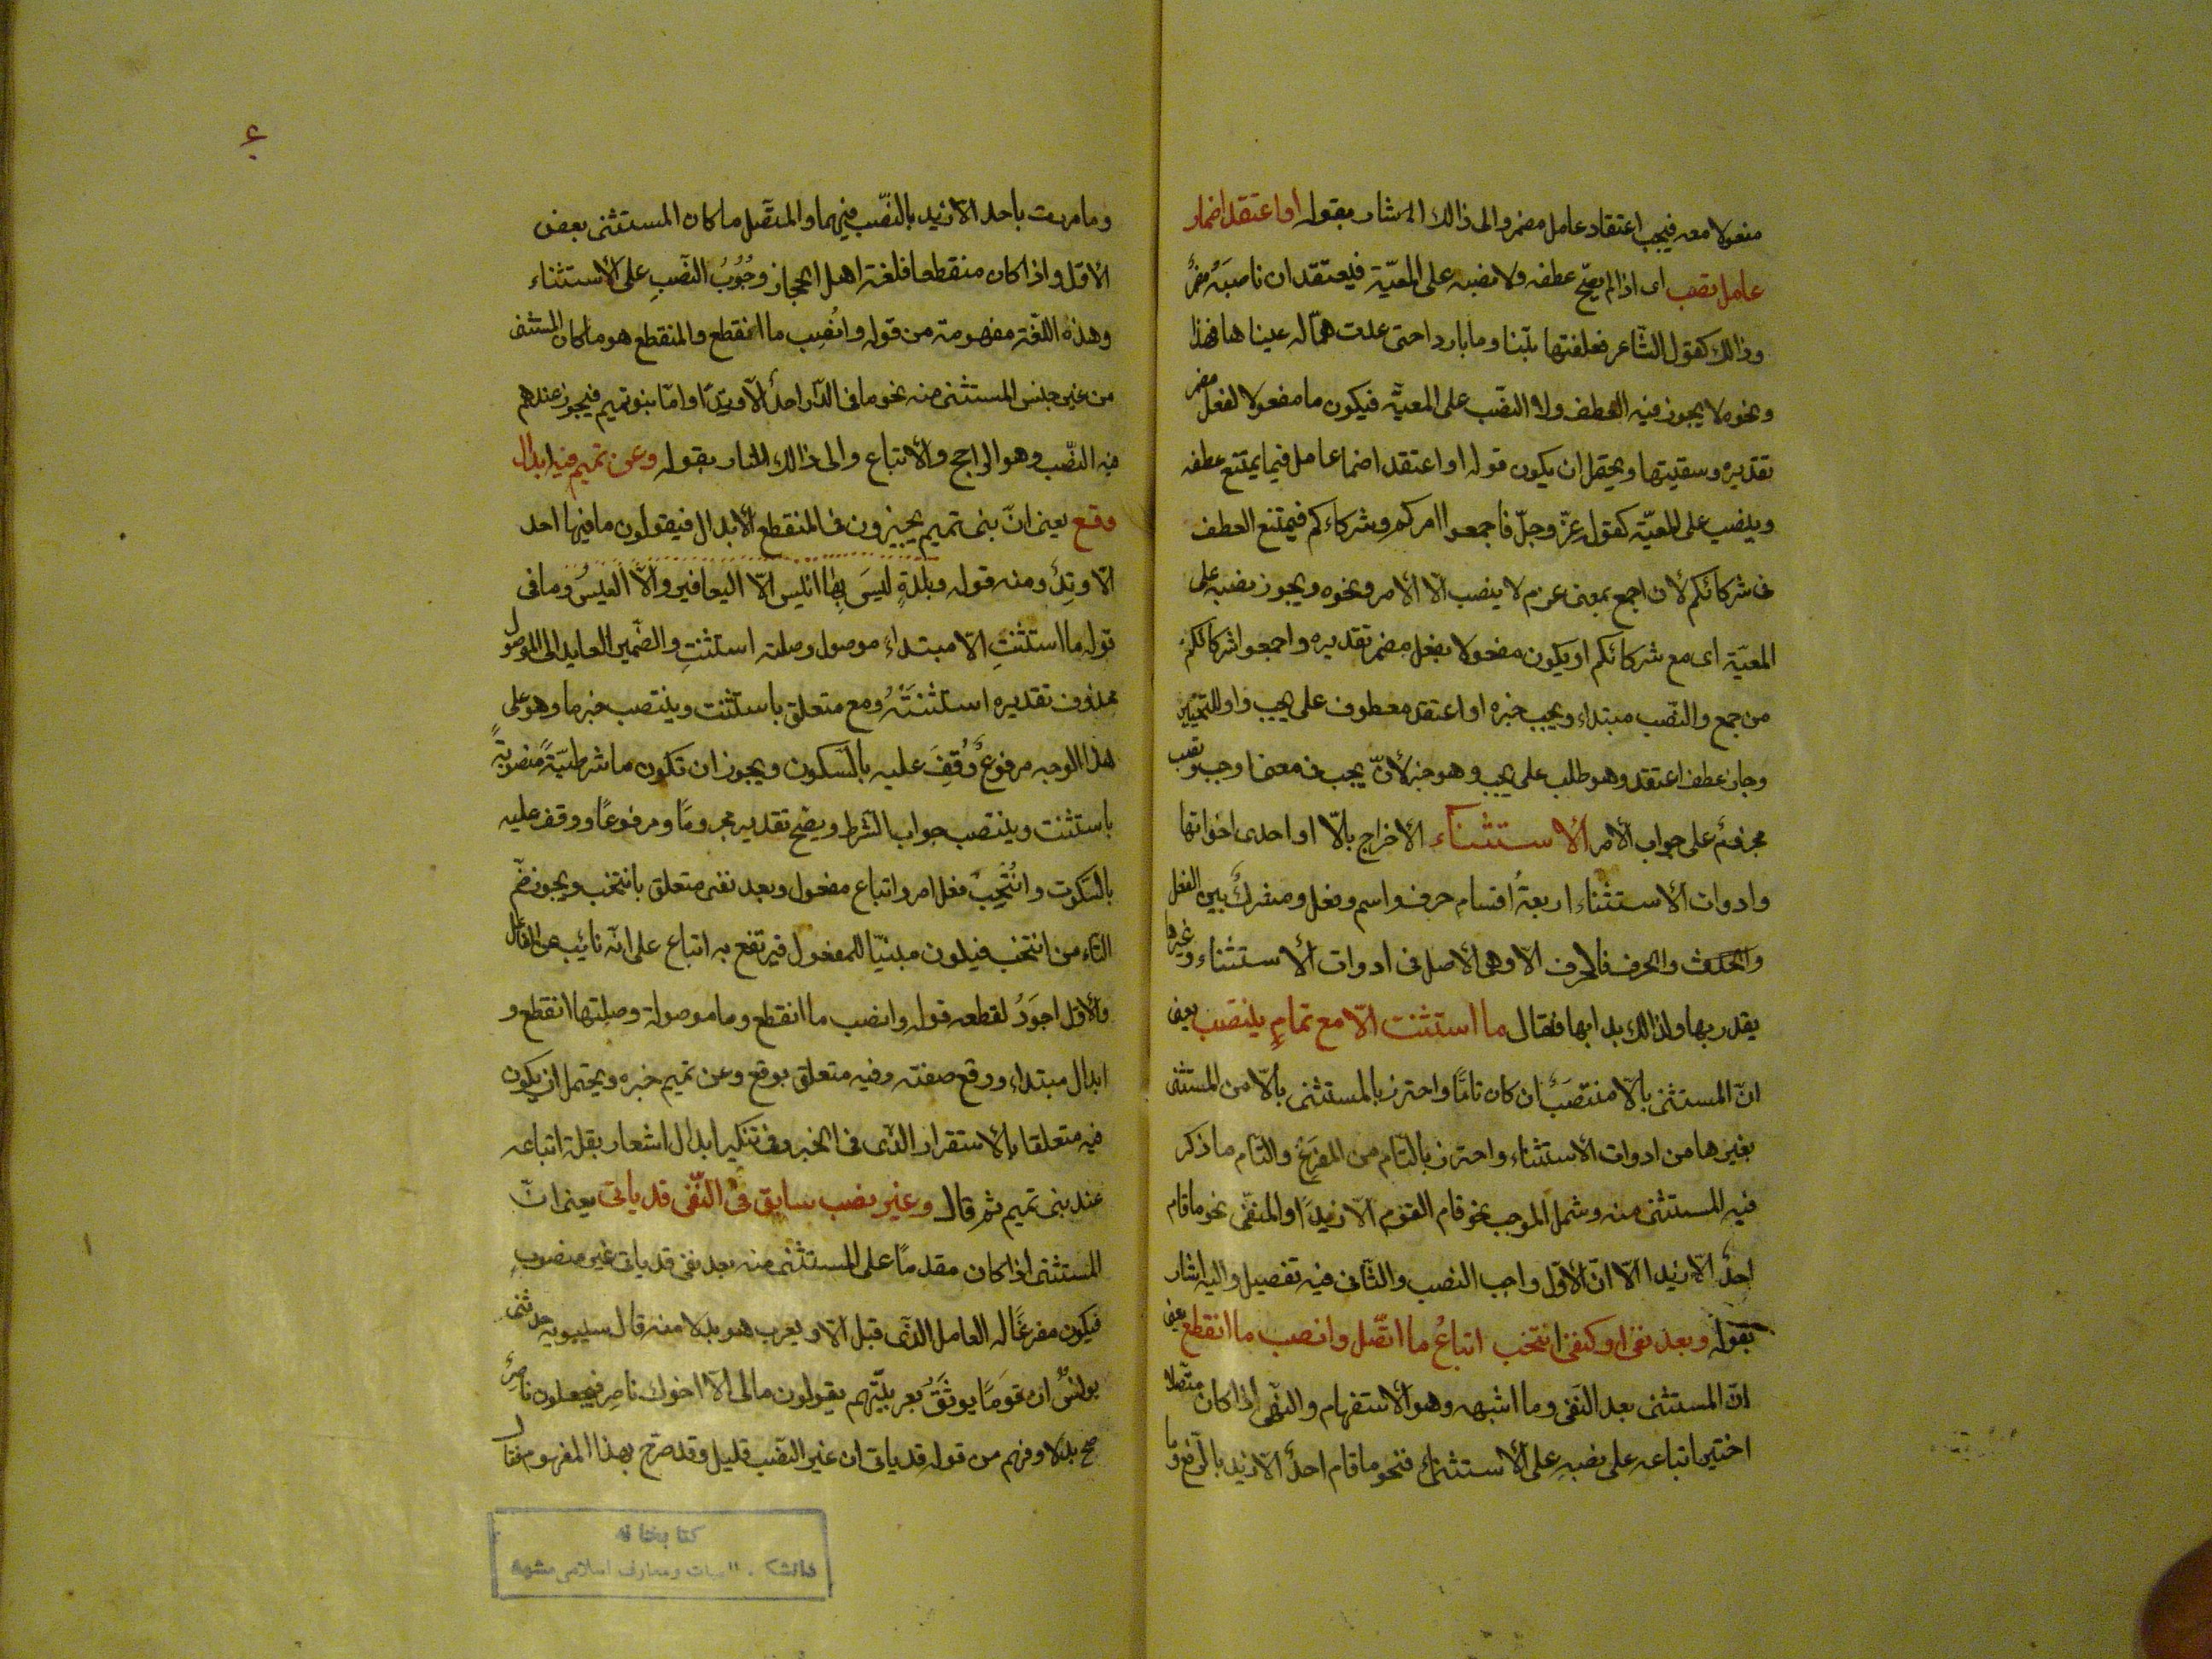 مفعولا معه فيجب اعتقاد عامل مضمر والى ذالك اشار بقوله أو اعتقد اضمار
عامل تصب اى اذا لم يصحّ عطفه ولا نصبه على المعيّة فيعتقد ان ناصبَه مضمرٌ
وذالك كقول الشّاعر فعلفتها تبنا وما باردا حتى غدت همّاله عيناها فهذا
ونحوه لا يجوز فيه العطف ولا النصّب على المعيّه فيكون ما مفعولا لفعل مضمر
تقديره وسقيتها ويحتمل ان يكون قوله او اعتقد اضما عامل فيما يمتنع عطفه
وينصب على المعيّة كقوله عزّ وجلّ فاجمعوا امركم وشركاءكم فيمتنع العطف
فى شركائكم لأن اجمع بمعنى عزم لا ينصب الّا الأمر ونحوه ويجوز نصبه على
المعيّة اى مع شركائكم او يكون مفعولا بفعل مضمر تقديره واجمعوا شركائكم
من جمع والنّصب مبتداء ويجب خبره او اعتقد معطوف على يجب واو للتّخيير
وجاز عطف اعتقد وهو طلب على يجب وهو خبر لأنّ يجب فى معنى اوجب وتصب
مجزومٌ على جواب الأمر الأستثناء الأخراج بالّا او احدى اخواتها
وادوات الأستثناء اربعةُ اقسام حرف واسم وفعل ومشتركٌ بين الفعل
والحرف فالحرف الّا وهى الأصل فى ادوات الأستثناء وغيرها
يقدر بها ولذالك بدا بها فقال ما استثنت الّا مع تمامٍ ينتصب يعنى
انّ المستثنى بالّا منتصَبٌ ان كان تامّا واحترز بالمستثنى بالّا من المستثنى
بغيرها من ادوات الأستثناء واحترز بالتّام من المفرغ والتّام ما ذكر
فيه المستثنى منه وشمل الموجب نحو قام القوم الّا زيدًا والمنفّى نحو ما قام
احدٌ الّا زيدا الّا انّ الأوّل واجب النصب والثّانى فيه تفصيل واليه اشار
بقوله وبعد نفى او كنفى انتخب اتباعُ ما اتّصل وانصب ما انقطع يعنى
انّ المستثنى بعد النّفى وما اشبهه وهو الأستفهام والنّهى اذا كان متّصلا
اختير اتباعه على نصبه على الأستثناء فنحو ما قام احدٌ الّا زيد بالّرفع وما
وما مررت باحد الّا زيد بالنصّب فيهما والمتّصل ما كان المستثنى بعض
الأوّل واذا كان منقطعا فلغة اهل الحجاز وجُوُبُ النّصبِ على الأستثناء
وهذه اللّغة مفهومة من قوله وانُصِب ما انقطع والمنقطع هو ما كان المستثنى
من غير جنس المستثنى منه نحو ما فى الدّار احدٌ الّا وتِدًا وامّا بنو تميم فيجوز عندهم
فيه النصّب وهو الراجح والأتباع والى ذالك اشار بقوله وعن تميم فيه ابدال
وقع يعنى انّ بنى تميم يجيزون فى المنقطع الأبدال فيقولون ما فيها احد
الّا وتِدٌ ومنه قوله وبلدةٍ ليسَ بِها انيس الّا اليعافير والّا العيسُ وما فى
قوله ما استثنتِ الّا مبتداء موصول وصلته استثنتِ والضّمير العايد الى الموصول
محذوف تقديره استثنَتْهُ ومع متعلق باستثنت وينتصب خبر ما وهو على
هذا الوجه مرفوعٌ وُقِفَ عليه بالسّكون ويجوز ان تكون ما شرطيّةً منصوبةً
باستثنت وينتصب جواب الشّرط ويصّح تقديره مجزومًا ومرفوعًا ووقف عليه
بالسّكون وانْتَخِبْ فعل امر واتباع مفعول وبعد نفى متعلق بانتخب ويجوز ضمّ
التّاء من انتخب فيكون مبنيّا للمفعول فيرتفع به اتباع على انّه نائب عن الفاعل
والأوّل اجوَدُ لقطعه قوله وانصب ما انقطع وما موصولة وصلتها انقطع و
ابدال مبتداء ووقع صفته وفيه متعلق بوقع وعن تميم خبره ويحتمل ان يكون
فيه متعلقا بالأستقرار الذّى فى الخبر وفى تنكير ابدال اشعار بقلة اتباعه
عند بنى تميم ثمّ قال وغير نصب سابق فى النّفى قد ياتى يعنى انّ
المستثنى اذا كان مقدمًا على المستثنى منه بعد نفى قد ياتى غير منصوب
فيكون مفرغًا له العامل الذّى قبل الّا ويعرب هو بدلا منه قال سيبويه حدثنى
يونسٌ ان قومًا يوثَقُ بعربيّتهم يقولون مالى الّا اخوك ناصِر فيجعلون ناصرٌ
صح بدلا وفهم من قوله قد ياتى ان غير النّصب قليل وقد صرّح بهذا المفهوم فقال
كتابخانه
دانشكده الهيات ومعارف اسلامى مشهد